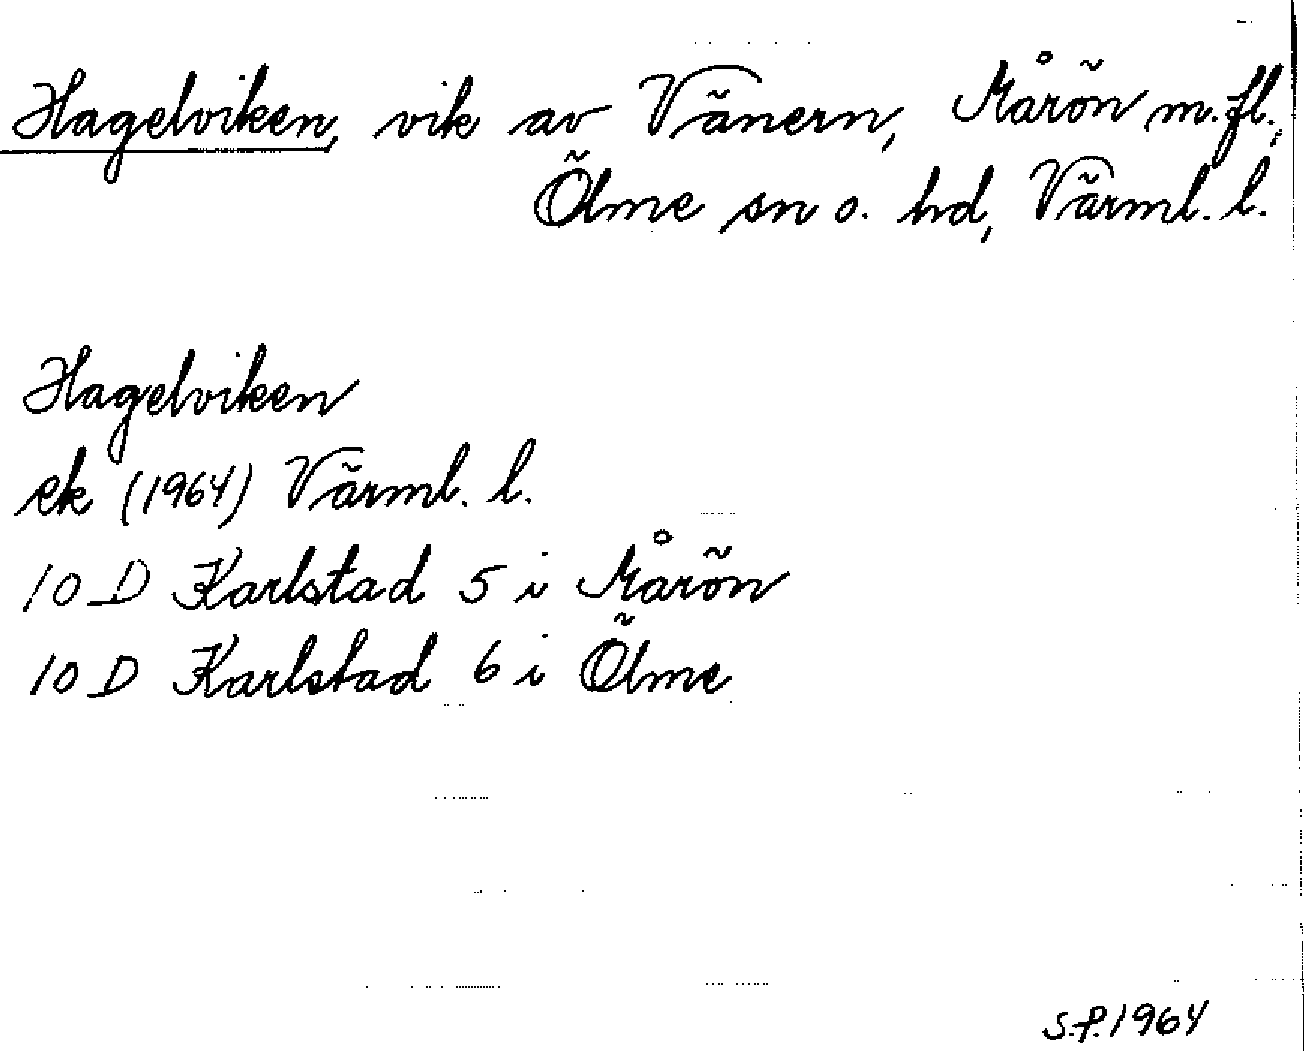 Hagelviken, vik av Vänern, Mårön m.fl.,
Ölme sn o. hd, Värml. l.
Hagelviken
ek (1964) Värml. l.
10 D Karlstad 5 i Mårön
10 D Karlstad 6 i Ölme
S.P. 1964